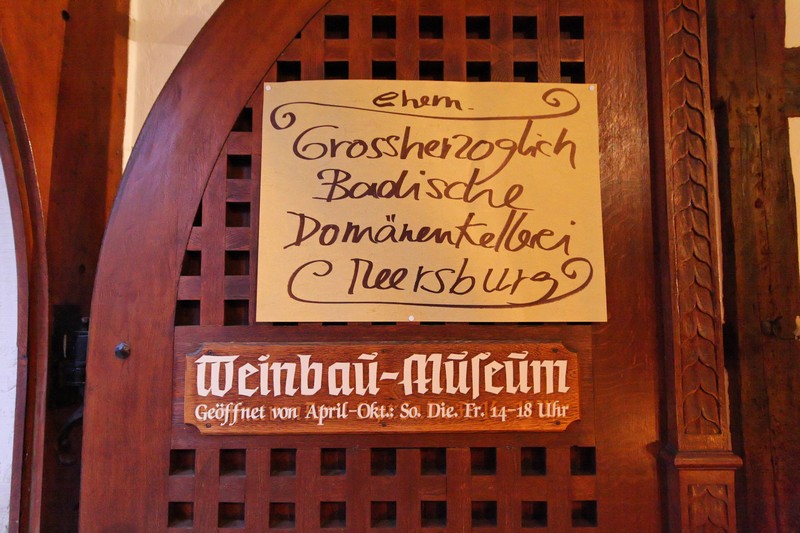 ehem.
Grossherzoglich
Badische
Domänenkellerei
Meersburg
Weinbaŭ-Mŭſeŭm
Geöffnet von April-Okt.: So. Die. Fr. 14-18 Uhr